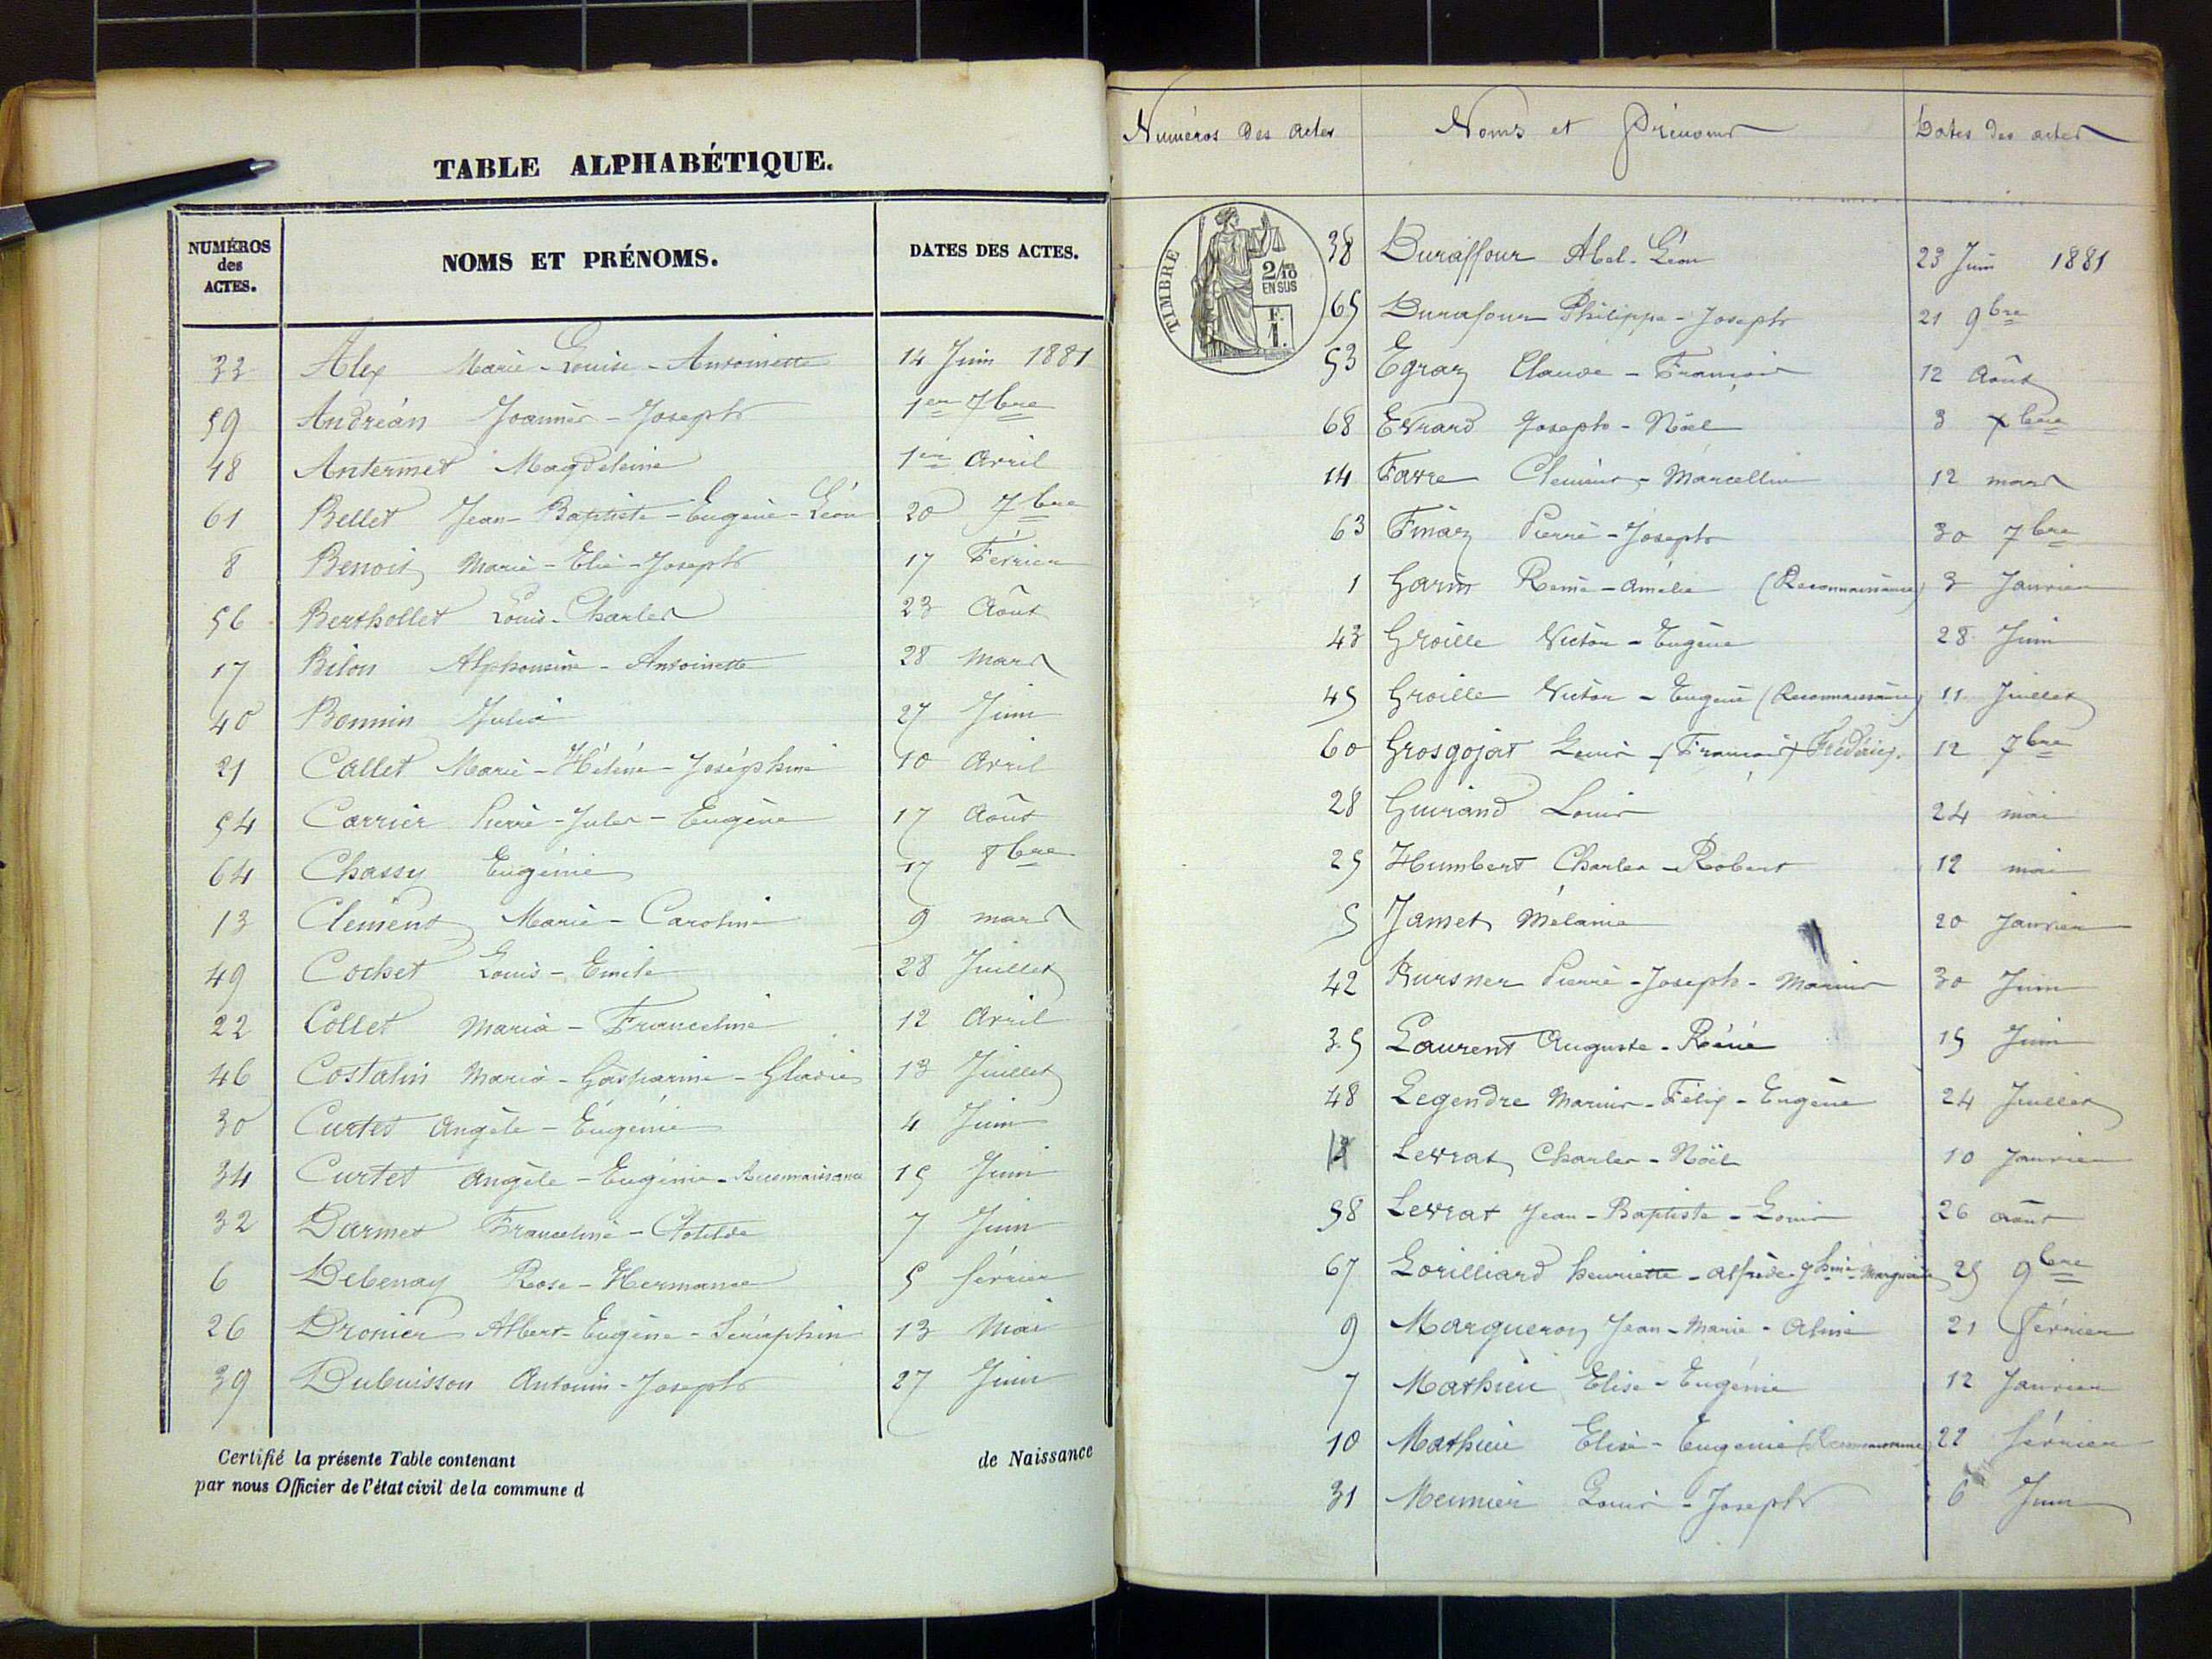 TABLE ALPHABÉTIQUE.
NUMÉROS des ACTES. NOMS ET PRÉNOMS. DATES DES ACTES.
33 Alex Marie-Louise-Antoinette 14 Juin 1881
59 Andréan Joannès-Joseph 1er 7bre
18 Antermet Magdeleine 1er Avril
61 Bellet Jean-Baptiste-Eugène-Léon 20 7bre
8 Benoit Marie-Elie-Joseph 17 Février
56 Berthollet Louis-Charles 23 Août
17 Bilon Alphonsine-Antoinette 28 Mars
40 Bonnin Julia 27 Juin
21 Callet Marie-Hélène-Joséphine 10 Avril
54 Carrier Pierre-Jules-Eugène 17 Août
64 Chassy Eugénie 17 8bre
13 Clément Marie-Caroline 9 mars
49 Cochet Louis-Emile 28 Juillet
22 Collet Maria-Franceline 12 Avril
46 Costalin Maria-Gasparine 13 Juillet
30 Curtet Angèle-Eugénie 4 Juin
34 Curtet Angèle-Eugénie-Reconnaissance 15 Juin
32 Darmet Franceline-Clotilde 7 Juin
6 Debenay Rose-Hermance 5 février
26 Dronier Albert-Eugène-Séraphin 13 Mai
39 Dubuisson Antonin-Joseph 27 Juin
Certifié la présente Table contenant de Naissance
par nous Officier de l'état civil de la commune d
Numéros des actes Noms et Prénoms Dates des actes
TIMBRE
2/10 EN SUS
F. 1.
38 Duraffour Abel-Léon 23 Juin 1881
65 Durafour Philippe-Joseph 21 9bre
53 Egraz Claude-François 12 Août
68 Evrard Joseph-Noël 3 xbre
14 Favre Clément-Marcellin 12 mars
63 Finaz Pierre-Joseph 30 7bre
1 Garin Remé-Amélie (Reconnaissance) 3 Janvier
43 Groille Victor-Eugène 28 Juin
45 Groille Victor-Eugène (Reconnaissance) 11 Juillet
60 Grosgojat Louis-(François) Frédéric 12 7bre
28 Guirand Louis 24 mai
25 Humbert Charles-Robert 12 mai
5 Jamet Mélanie 20 Janvier
42 Kursner Pierre-Joseph-Marius 30 Juin
35 Laurent Auguste-Réné 15 Juin
48 Legendre Marius-Félix-Eugène 24 Juillet
Levrat Charles-Noël 10 Janvier
58 Levrat Jean-Baptiste-Louis 26 août
67 Lorilliard henriette-Alfrède-Jhine-Marguerite 25 9bre
9 Margueron Jean-Marie-Aimé 21 février
7 Mathieu Elise-Eugénie 12 Janvier
10 Mathieu Elise-Eugénie (Reconnaissance) 22 février
31 Meunier Louis-Joseph 6 Juin